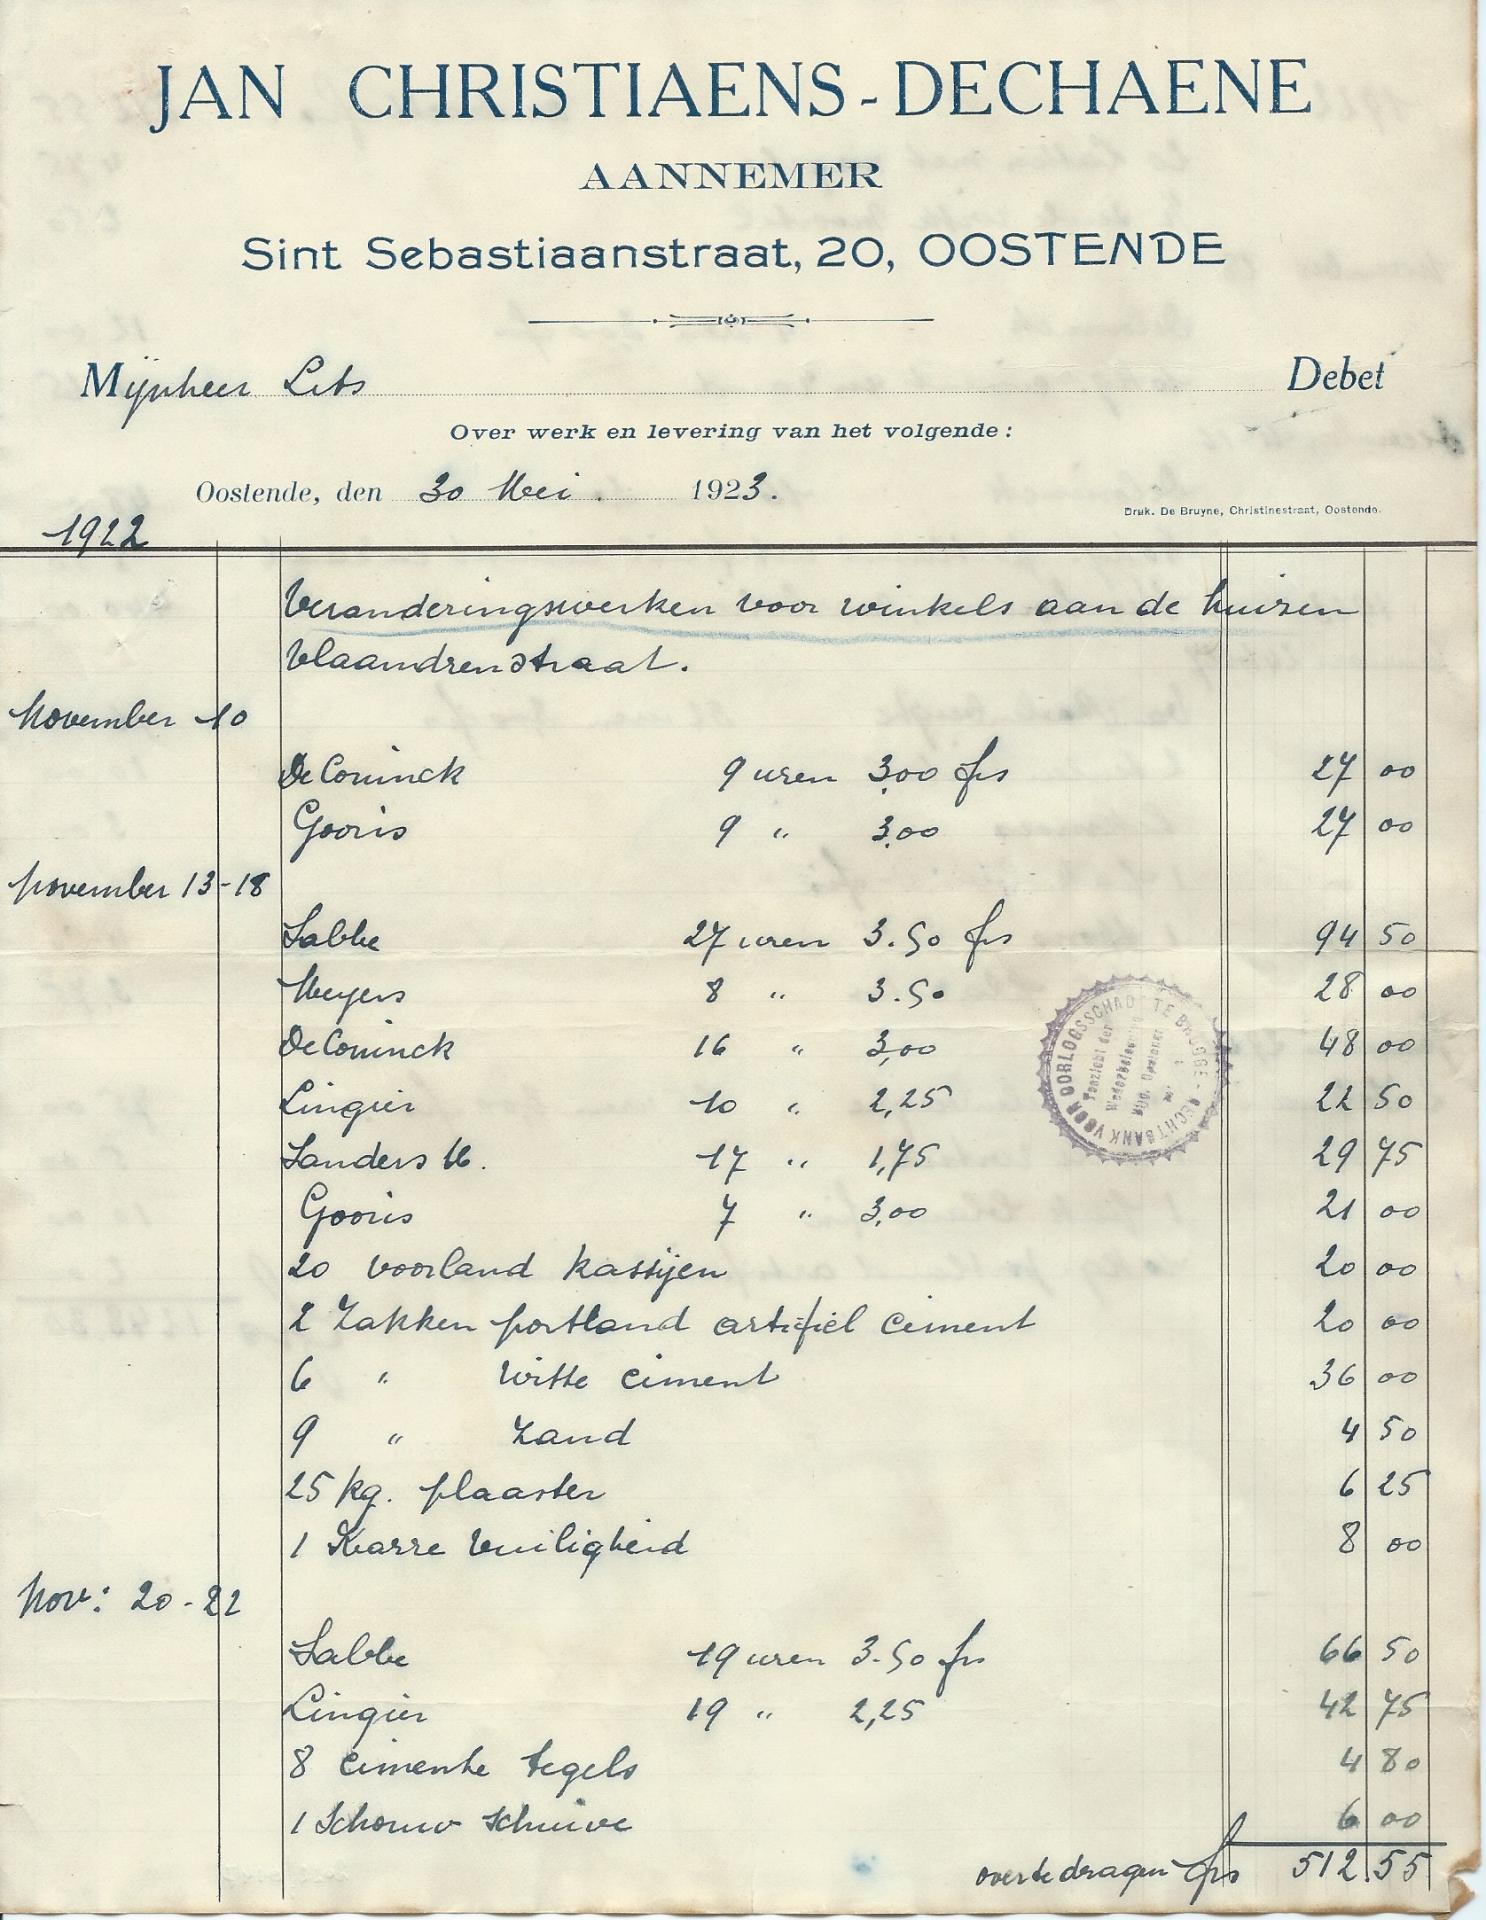 JAN CHRISTIAENS-DECHAENE
AANNEMER
Sint Sebastiaanstraat, 20, OOSTENDE
Mijnheer Lets Debet
Over werk en levering van het volgende:
Oostende, den 30 Mei. 1923.
Druk. De Bruyne, Christinestraat, Oostende.
1922
Veranderingswerken voor winkels aan de huizen
Vlaandrenstraat.
November 10
DeConinck 9 uren 3,00 frs 27 00
Gooris 9 " 3,00 27 00
november 13-18
Sabbe 27 uren 3.50 frs 94 50
Meyers 8 " 3.50 28 00
DeConinck 16 " 3,00 48 00
Lingier 10 " 2,25 22 50
Sanders M. 17 " 1,75 29 75
Gooris 7 " 3,00 21 00
20 voorland kassijen 20 00
2 Zakken portland artifiel ciment 20 00
6 " witte ciment 36 00
9 " Zand 4 50
25 kg. plaaster 6 25
1 Karre Vuiligheid 8 00
Nov: 20-22
Sabbe 19 uren 3.50 frs 66 50
Lingier 19 " 2,25 42 75
8 cimente tegels 4 80
1 Schouw schuive 6 00
overtedragen frs 512.55
RECHTBANK VOOR OORLOGSSCHADE TE BRUGGE